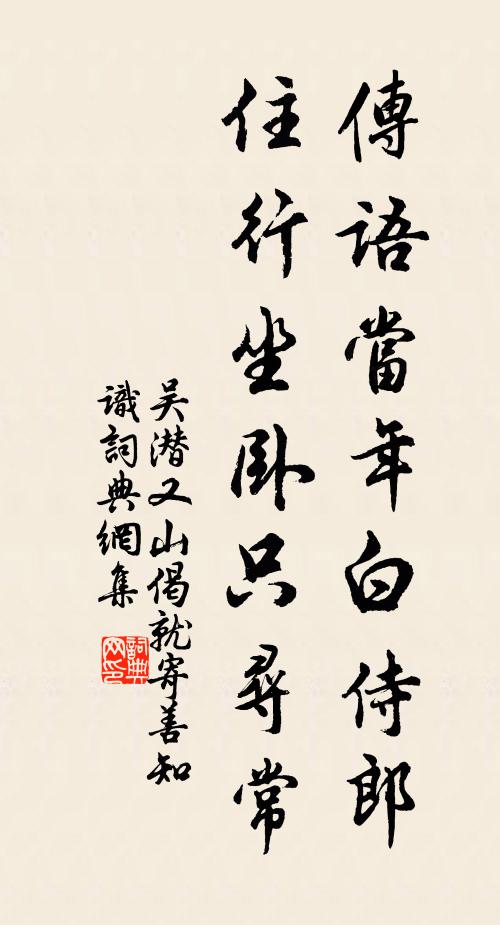 傳語當年白侍郎
住行坐卧只尋常
吴潜又山偈就寄善知
識詞典網集
詞典網印